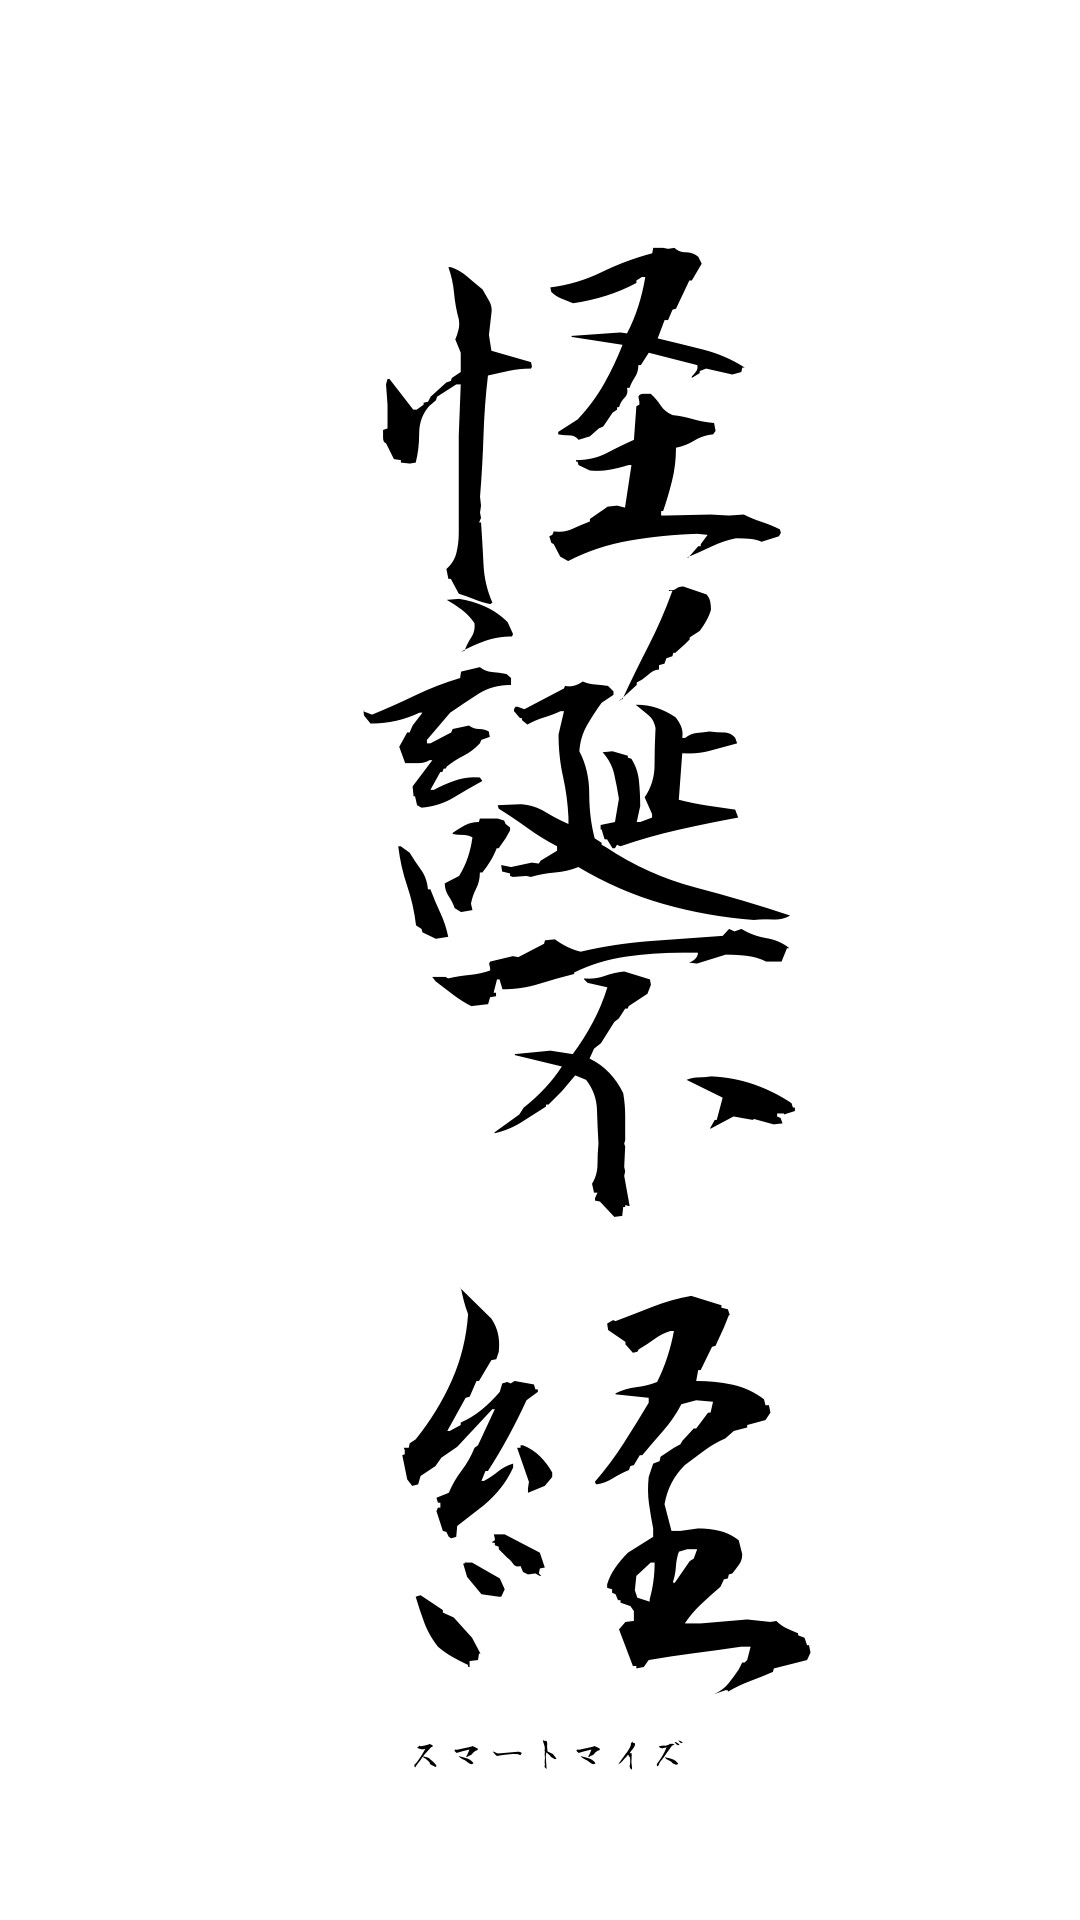 怪誕不経
スマートマイズ